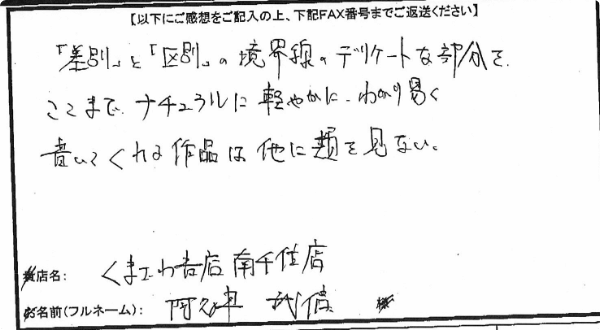 【以下にご感想をご記入の上、下記FAX番号までご返送ください】
「差別」と「区別」の境界線のデリケートな部分を
ここまで、ナチュラルに軽やかに、わかり易く
書いてくれる作品は他に類を見ない。
店名: くまざわ書店 南千住店
名前(フルネーム): 阿久津 武信